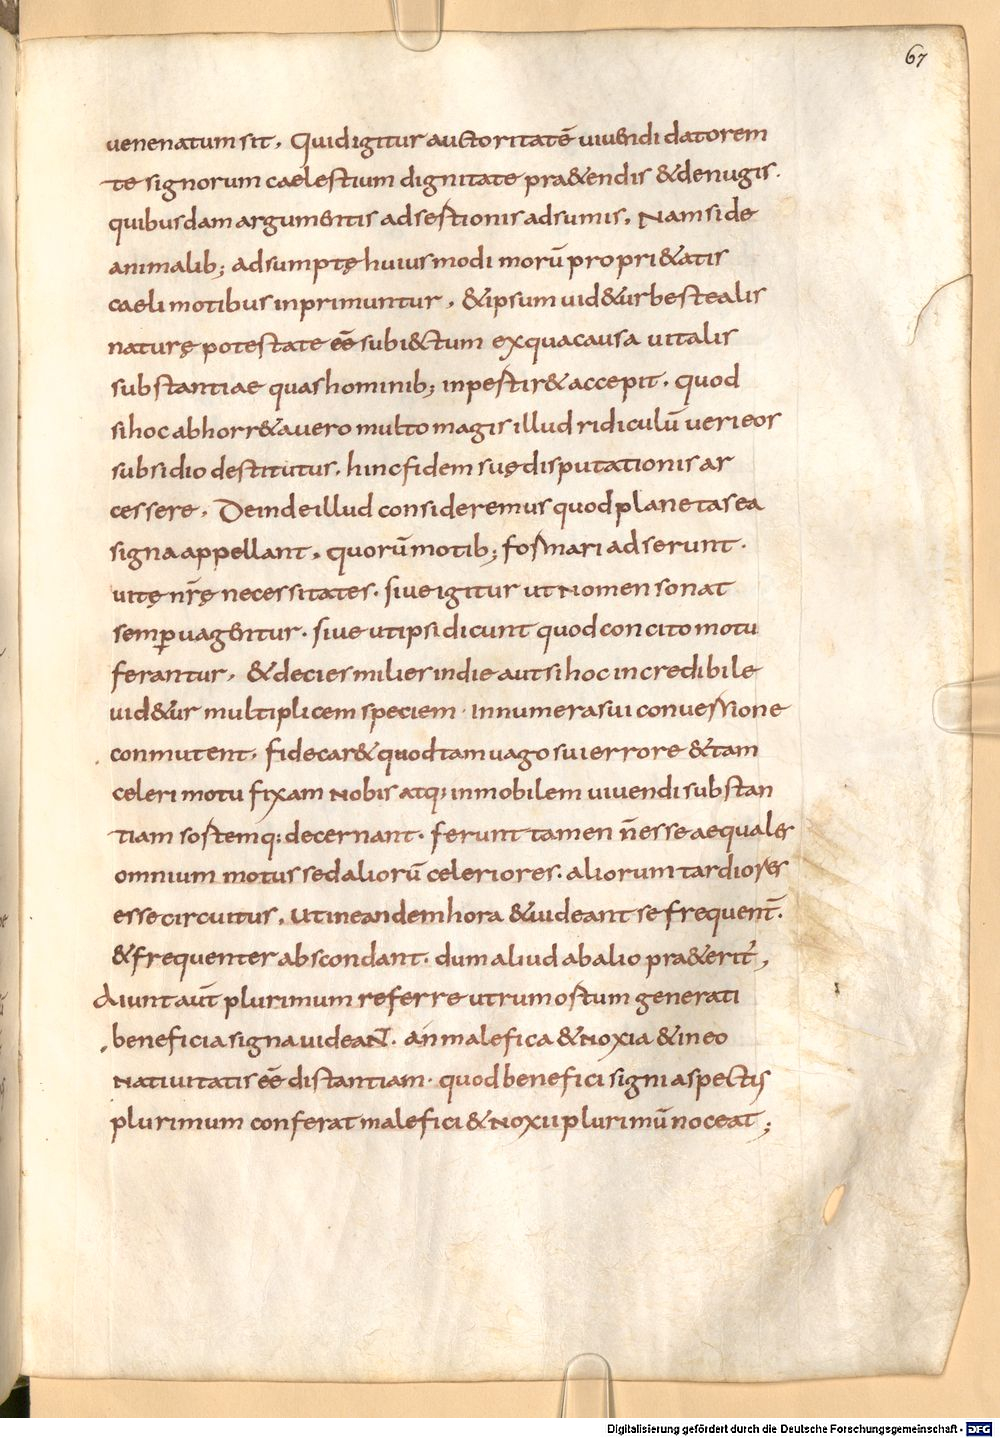 67
uenenatum sit, Quid igitur auctoritatē uiuendi datorem
te signorum caelestium dignitate pra&endis & de nugis.
quibusdam argumentis adsestionis adsumis, Nam si de
animalib; adsumptę huius modi morū propri&atis
caeli motibus inprimuntur, & ipsum uid&ur bestealis
naturę potestate eē subi&tum ex qua causa uitalis
substantiae quas hominib; inpestir& accepit. quod
si hoc abhorr& a uero multo magis illud ridiculū ueri eor
subsidio destitutus. hinc fidem suę disputationis ar
cessere, Deinde illud consideremus quod planetas ea
signa appellant, quorū motib; formari adserunt.
uitę nr̄ę necessitates. siue igitur ut nomen sonat
semꝑ uagentur. siue ut ipsi dicunt quod concito motu
ferantur, & decies milier in die aut si hoc incredibile
uid&ur multiplicem speciem. innumera sui conuersione
conmutent, fide car& quod tam uago sui errore & tam
celeri motu fixam nobis atq; inmobilem uiuendi substan
tiam sostemq; decernant. ferunt tamen n̄ esse aequales
omnium motus sed aliorū celeriores. aliorum tardiores
esse circuitus, ut in eandem hora & uideant se frequent̄.
& frequenter abscondant. dum aliud ab alio pra&erit,
Aiunt aūt plurimum referre utrum ostum generati
beneficia signa uideaNT. an malefica & noxia & in eo
natiuitatis eē distantiam. quod benefici signi aspectis
plurimum conferat malefici & noxii plurimū noceat;
Digitalisierung gefördert durch die Deutsche Forschungsgemeinschaft - DFG